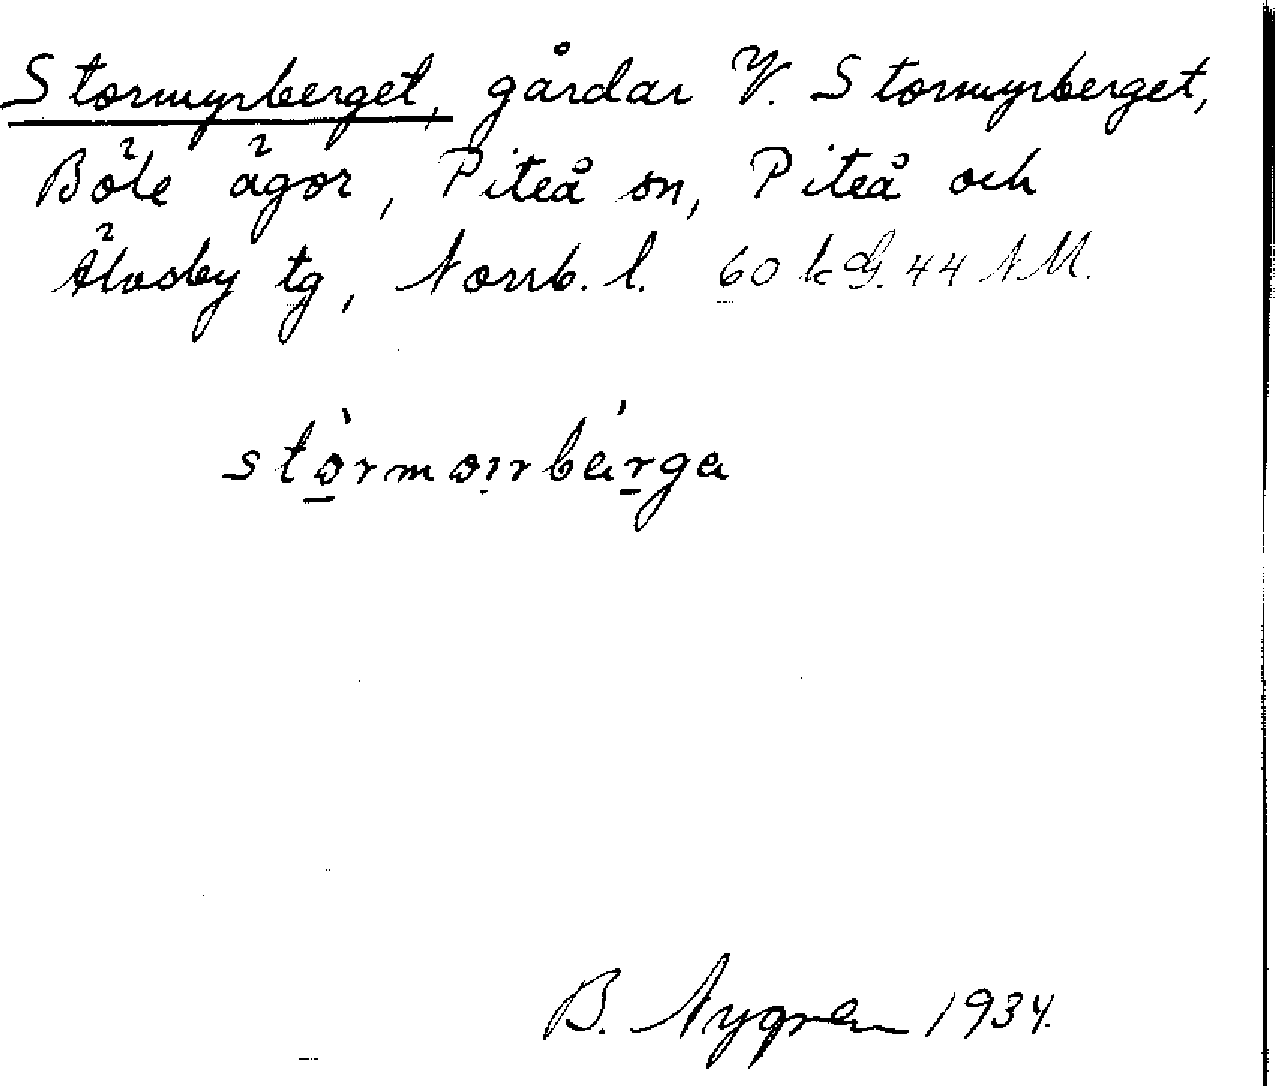 Stormyrberget, gårdar V. Stormyrberget,
Böle ägor, Piteå sn, Piteå och
Älvsby tg, Norrb. l. 60 k d. 44 N.M.
stormoırbärga
B. Nygren 1934.